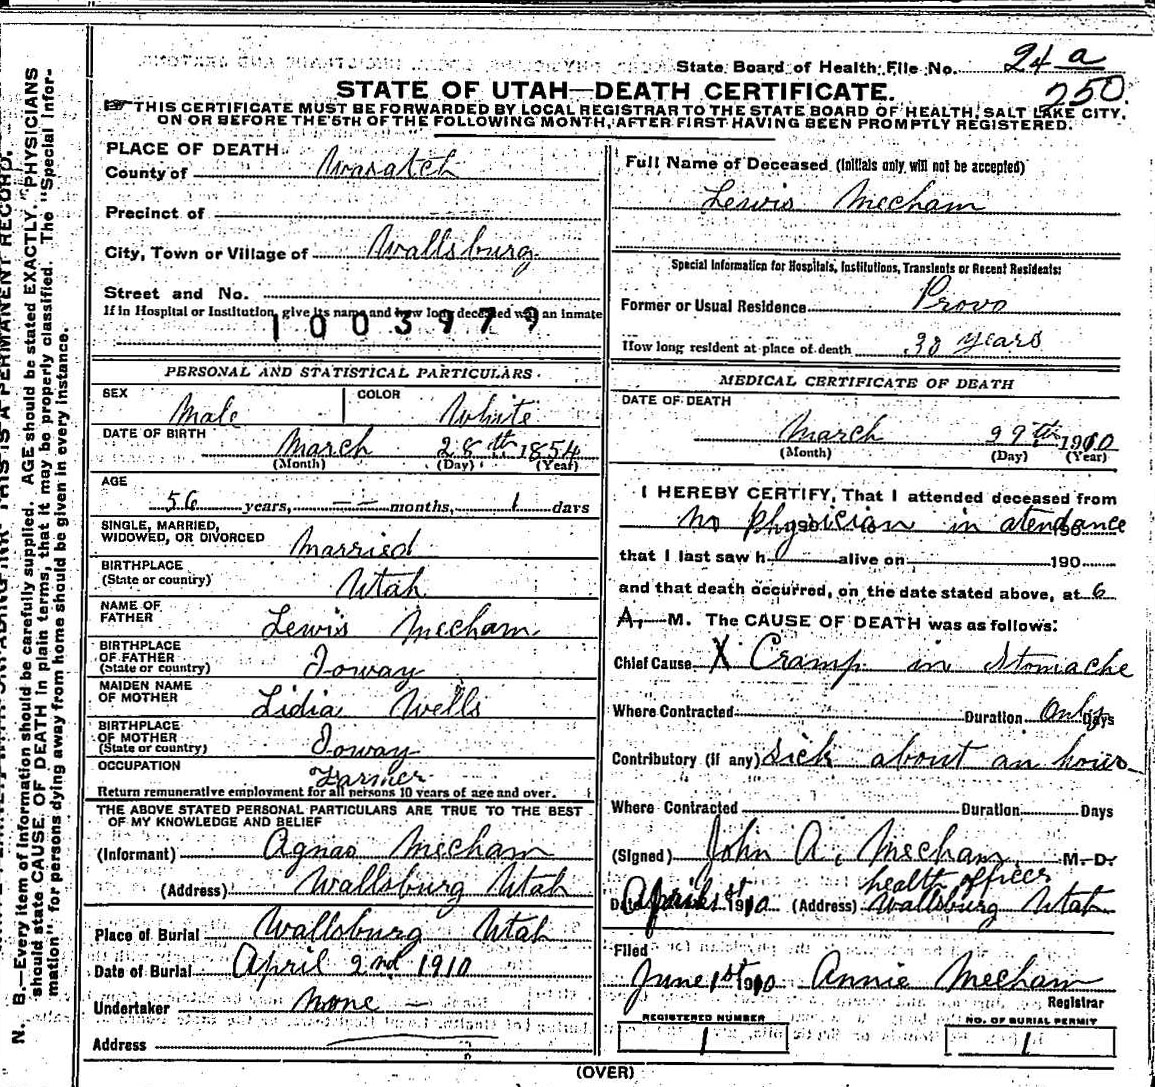 State Board of Health File No. 24 a
250
STATE OF UTAH—DEATH CERTIFICATE.
THIS CERTIFICATE MUST BE FORWARDED BY LOCAL REGISTRAR TO THE STATE BOARD OF HEALTH, SALT LAKE CITY,
ON OR BEFORE THE 5TH OF THE FOLLOWING MONTH, AFTER FIRST HAVING BEEN PROMPTLY REGISTERED.
PLACE OF DEATH
County of Wasatch
Precinct of
City, Town or Village of Wallsburg
Street and No.
If in Hospital or Institution, give its name and how long deceased was an inmate
1003979
PERSONAL AND STATISTICAL PARTICULARS.
SEX Male COLOR White
DATE OF BIRTH March 28th 1854
(Month) (Day) (Year)
AGE
56 years, — months, 1 days
SINGLE, MARRIED,
WIDOWED, OR DIVORCED Married
BIRTHPLACE
(State or country) Utah
NAME OF
FATHER Lewis Mecham
BIRTHPLACE
OF FATHER
(State or country) Ioway
MAIDEN NAME
OF MOTHER Lidia Wells
BIRTHPLACE
OF MOTHER
(State or country) Ioway
OCCUPATION Farmer
Return remunerative employment for all persons 10 years of age and over.
THE ABOVE STATED PERSONAL PARTICULARS ARE TRUE TO THE BEST
OF MY KNOWLEDGE AND BELIEF
(Informant) Agnas Mecham
(Address) Wallsburg Utah
Place of Burial Wallsburg Utah
Date of Burial April 2nd 1910
Undertaker none —
Address
Full Name of Deceased (Initials only will not be accepted)
Lewis Mecham
Special Information for Hospitals, Institutions, Transients or Recent Residents:
Former or Usual Residence Provo
How long resident at place of death 30 years
MEDICAL CERTIFICATE OF DEATH
DATE OF DEATH
March 29th 1910
(Month) (Day) (Year)
I HEREBY CERTIFY, That I attended deceased from
no physician in atendance
that I last saw h alive on 190
and that death occurred, on the date stated above, at 6
A. M. The CAUSE OF DEATH was as follows:
Chief Cause X Cramp in Stomache
Where Contracted Duration Only Days
Contributory (if any) sick about an hour
Where Contracted Duration Days
(Signed) John A. Mecham M. D.
health officer
Date April 1st 1910 (Address) Wallsburg Utah
Filed
June 1st 1910 Annie Mecham
Registrar
REGISTERED NUMBER
1
NO. OF BURIAL PERMIT
1
(OVER)
N. B.—Every item of information should be carefully supplied. AGE should be stated EXACTLY. PHYSICIANS
should state CAUSE OF DEATH in plain terms, that it may be properly classified. The "Special Infor-
mation" for persons dying away from home should be given in every instance.
THIS IS A PERMANENT RECORD.